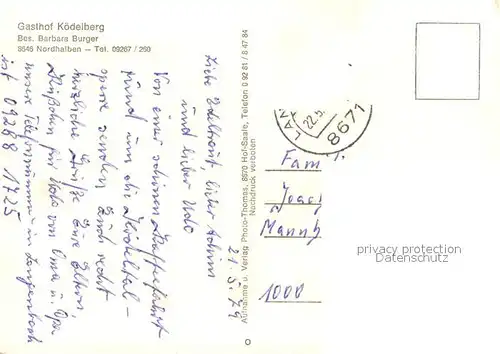 Gasthof Ködelberg
Bes. Barbara Burger
8646 Nordhalben — Tel. 09267 / 260
21.5.79
Liebe Edeltraut, lieber Achim
und lieber Udo
Von einer schönen Kaffeefahrt
rund um die
senden Euch recht
herzliche Grüße Eure Eltern
für Udo von Oma u. Opa
unsere Telefonnummer in
ist 09288 1725
Aufnahme u. Verlag Photo-Thomas, 8670 Hof-Saale, Telefon 0 92 81 / 8 47 84
Nachdruck verboten
22.5.
8671
Fam.
1000
privacy protection
Datenschutz